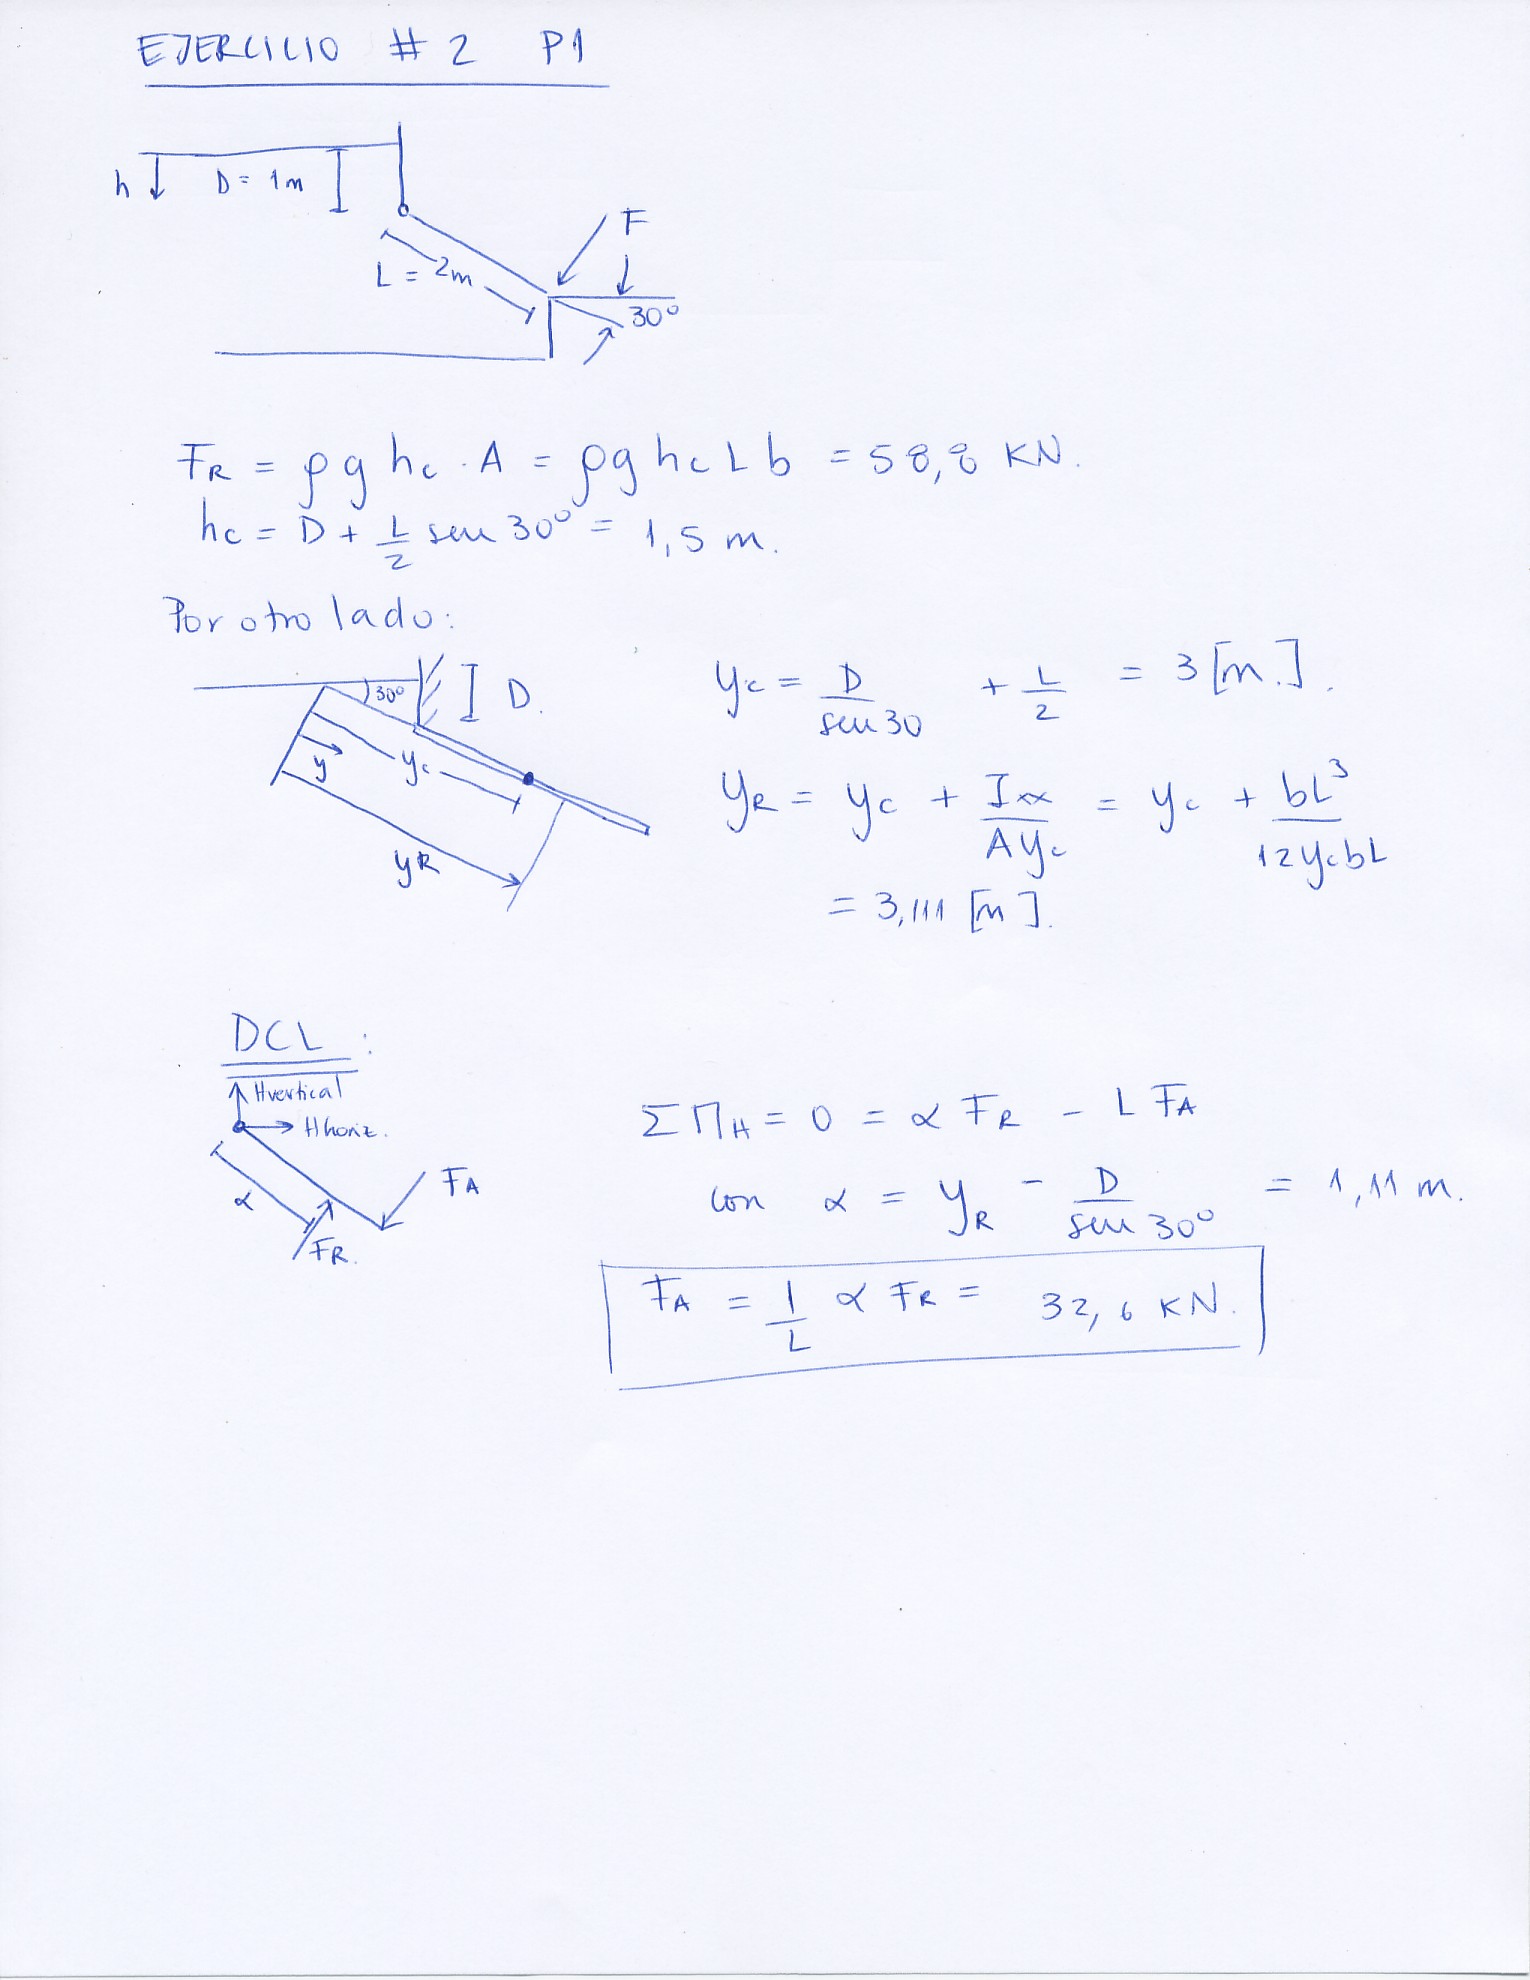 EJERCICIO # 2 P1
h D = 1m
F
L = 2m
30°
FR = ρ g hc · A = ρ g hc L b = 58,8 KN.
hc = D + L/2 sen 30° = 1,5 m.
Por otro lado:
30° D.
y yc
yR
yc = D/sen 30 + L/2 = 3 [m.].
yR = yc + Ixx/A yc = yc + bL³/12 yc bL
= 3,111 [m].
DCL :
Hvertical
Hhoriz.
α FA
FR.
Σ MH = 0 = α FR - L FA
con α = yR - D/sen 30° = 1,11 m.
FA = 1/L α FR = 32,6 KN.